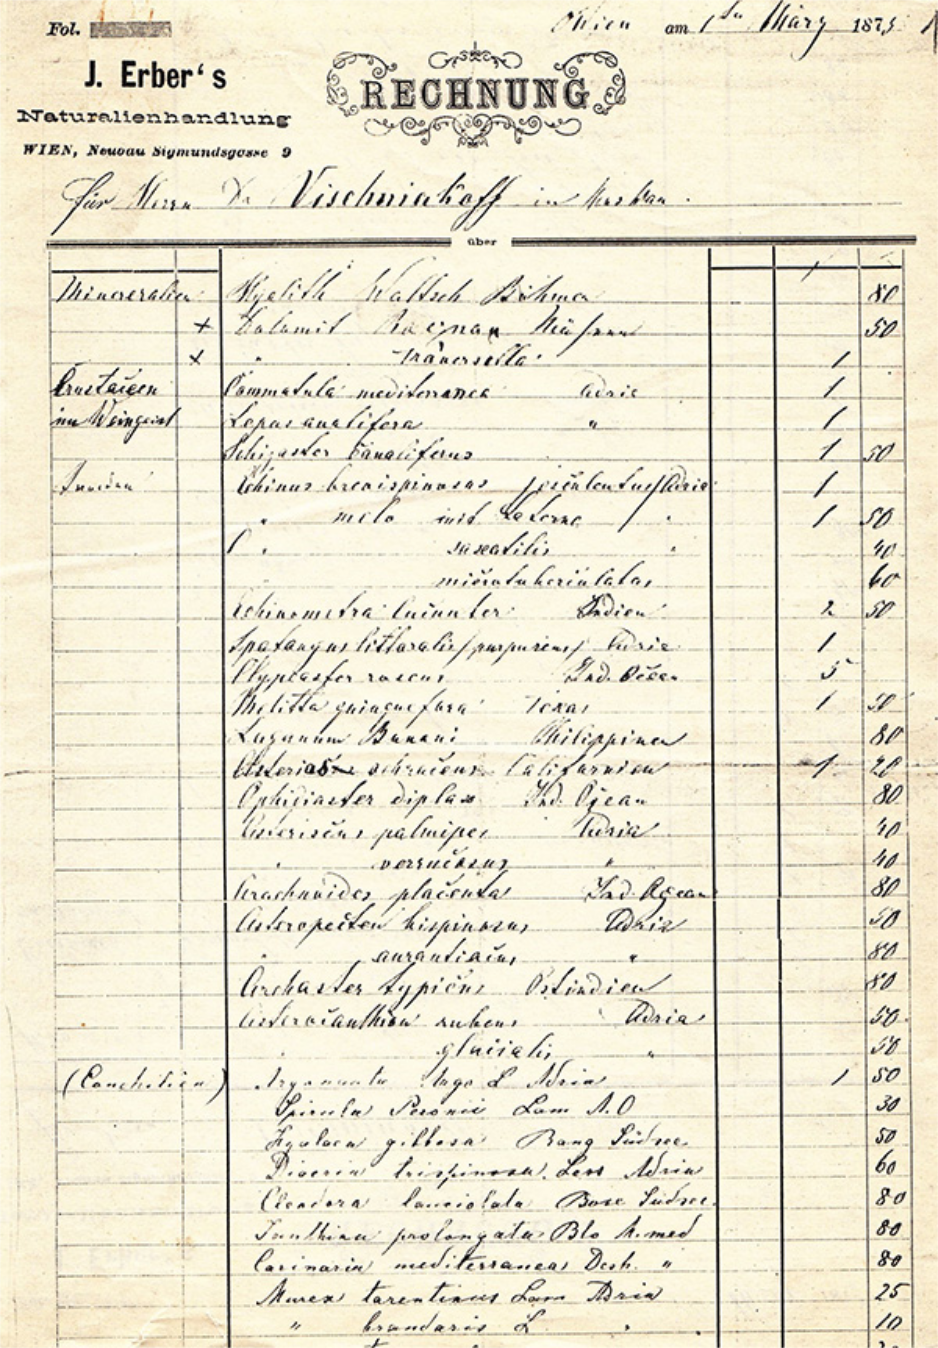 Fol.
Wien am 1ten März 1875
J. Erber's
Naturalienhandlung
WIEN, Neubau Sigmundsgasse 9
RECHNUNG
für Herrn Dr Vischniakoff in Moskau.
über
Mineralien Hyalith Waltsch Böhmen 80
+ Calamit 50
+ " Traversella 1
Crustaceen Commatula mediterranea Adria 1
im Weingeist Lepas anatifera " 1
Schizaster canaliferus 1 50
Echinus brevispinosus Adria 1
" melo mit Laterne " 1 50
" saxatilis " 40
" microtuberculatus 60
Echinometra lucunter Indien 2 50
Spatangus littoralis (purpureus) Adria 1
Clypeaster rosceus Ind. Ocean 5
Melitta quinquefora Texas 1 50
Laganum Bonani Philippinen 80
Asterias ochraceus Californien 1 20
Ophidiaster diplax Ind. Ozean 80
Asteriscus palmipes Adria 40
" verrucosus " 40
Arachnoides placenta Ind. Ozean 80
Asteropecten bispinosus Adria 50
" aurantiacus " 80
Archaster typicus Ostindien 80
Asteracanthion rubens Adria 50
" glacialis " 50
(Conchilien) Argonauta Argo L Adria 1 50
Spirula Peronii Lam A. O 30
Hyalaea gibbosa Rang Südsee 50
trispinosa Less Adria 60
Cleodora lanciolata Südsee 80
Janthina prolongata Bla M. med 80
Carinaria mediterranea Desh. " 80
Murex tarentinus Lam Adria 25
" brandaris L " 10